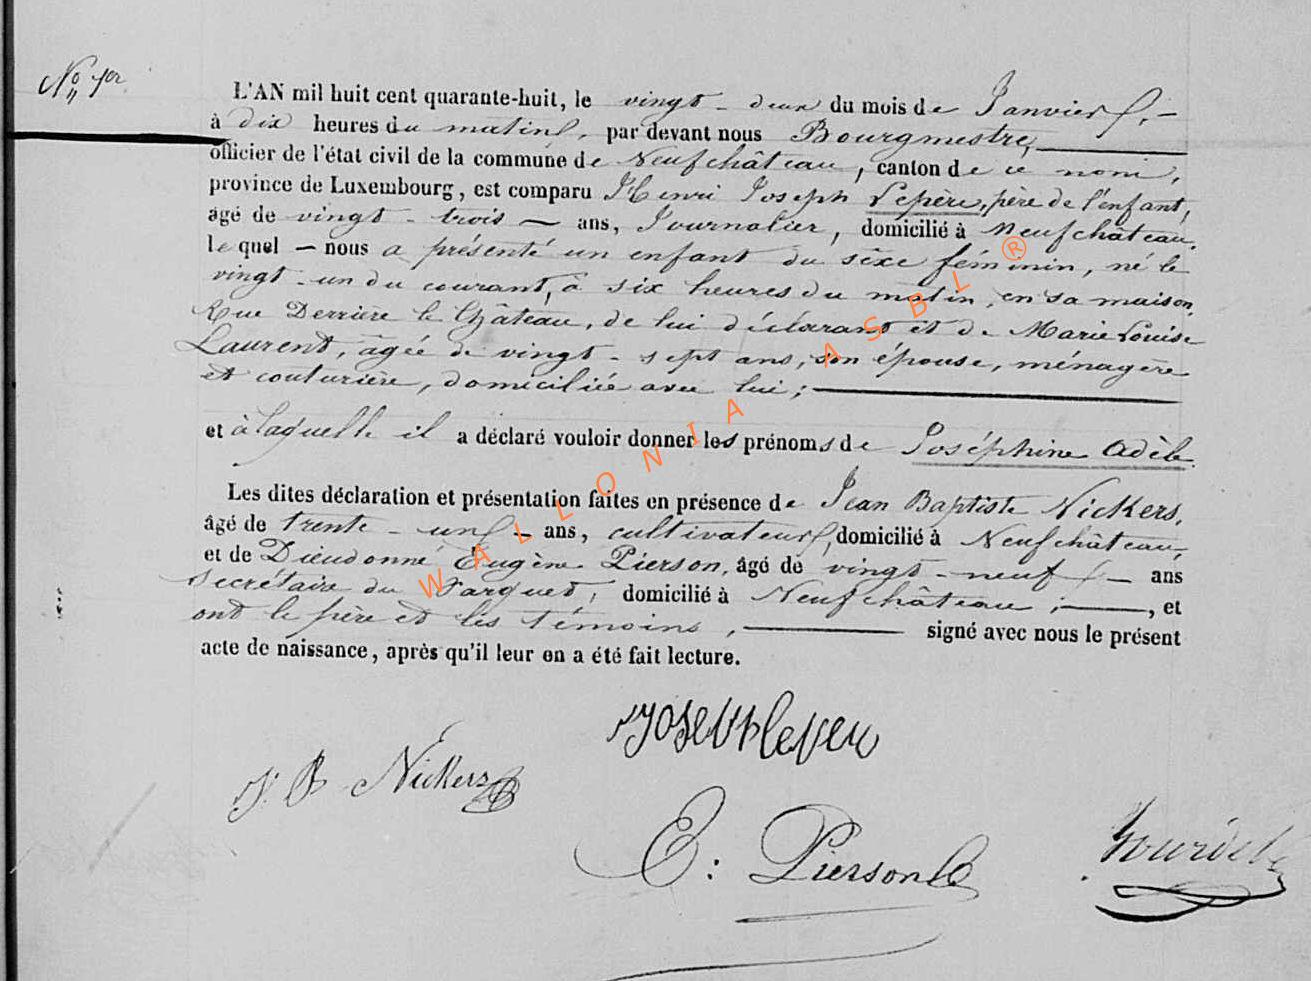 N° 1er
L'AN mil huit cent quarante-huit, le vingt-deux du mois de Janvier,
à dix heures du matin, par devant nous Bourgmestre,
officier de l'état civil de la commune de Neufchâteau, canton de ce nom,
province de Luxembourg, est comparu Henri Joseph Lepère, père de l'enfant,
âgé de vingt-trois — ans, Journalier, domicilié à Neufchâteau,
le quel — nous a présenté un enfant du sèxe féminin, né le
vingt-un du courant, à six heures du matin, en sa maison,
Rue Derrière le Château, de lui déclarant et de Marie Louise
Laurent, âgée de vingt-sept ans, son épouse, ménagère
et couturière, domiciliée avec lui;
et à laquelle il a déclaré vouloir donner les prénoms de Joséphine Adèle
Les dites déclaration et présentation faites en présence de Jean Baptiste Nickers,
âgé de trente-un — ans, cultivateur, domicilié à Neufchâteau,
et de Dieudonné Eugène Pierson, âgé de vingt-neuf — ans
secrétaire du Parquet, domicilié à Neufchâteau; —, et
ont le père et les témoins, — signé avec nous le présent
acte de naissance, après qu'il leur en a été fait lecture.
J. B. Nickers
E: Pierson
WALLONIA ASBL ®